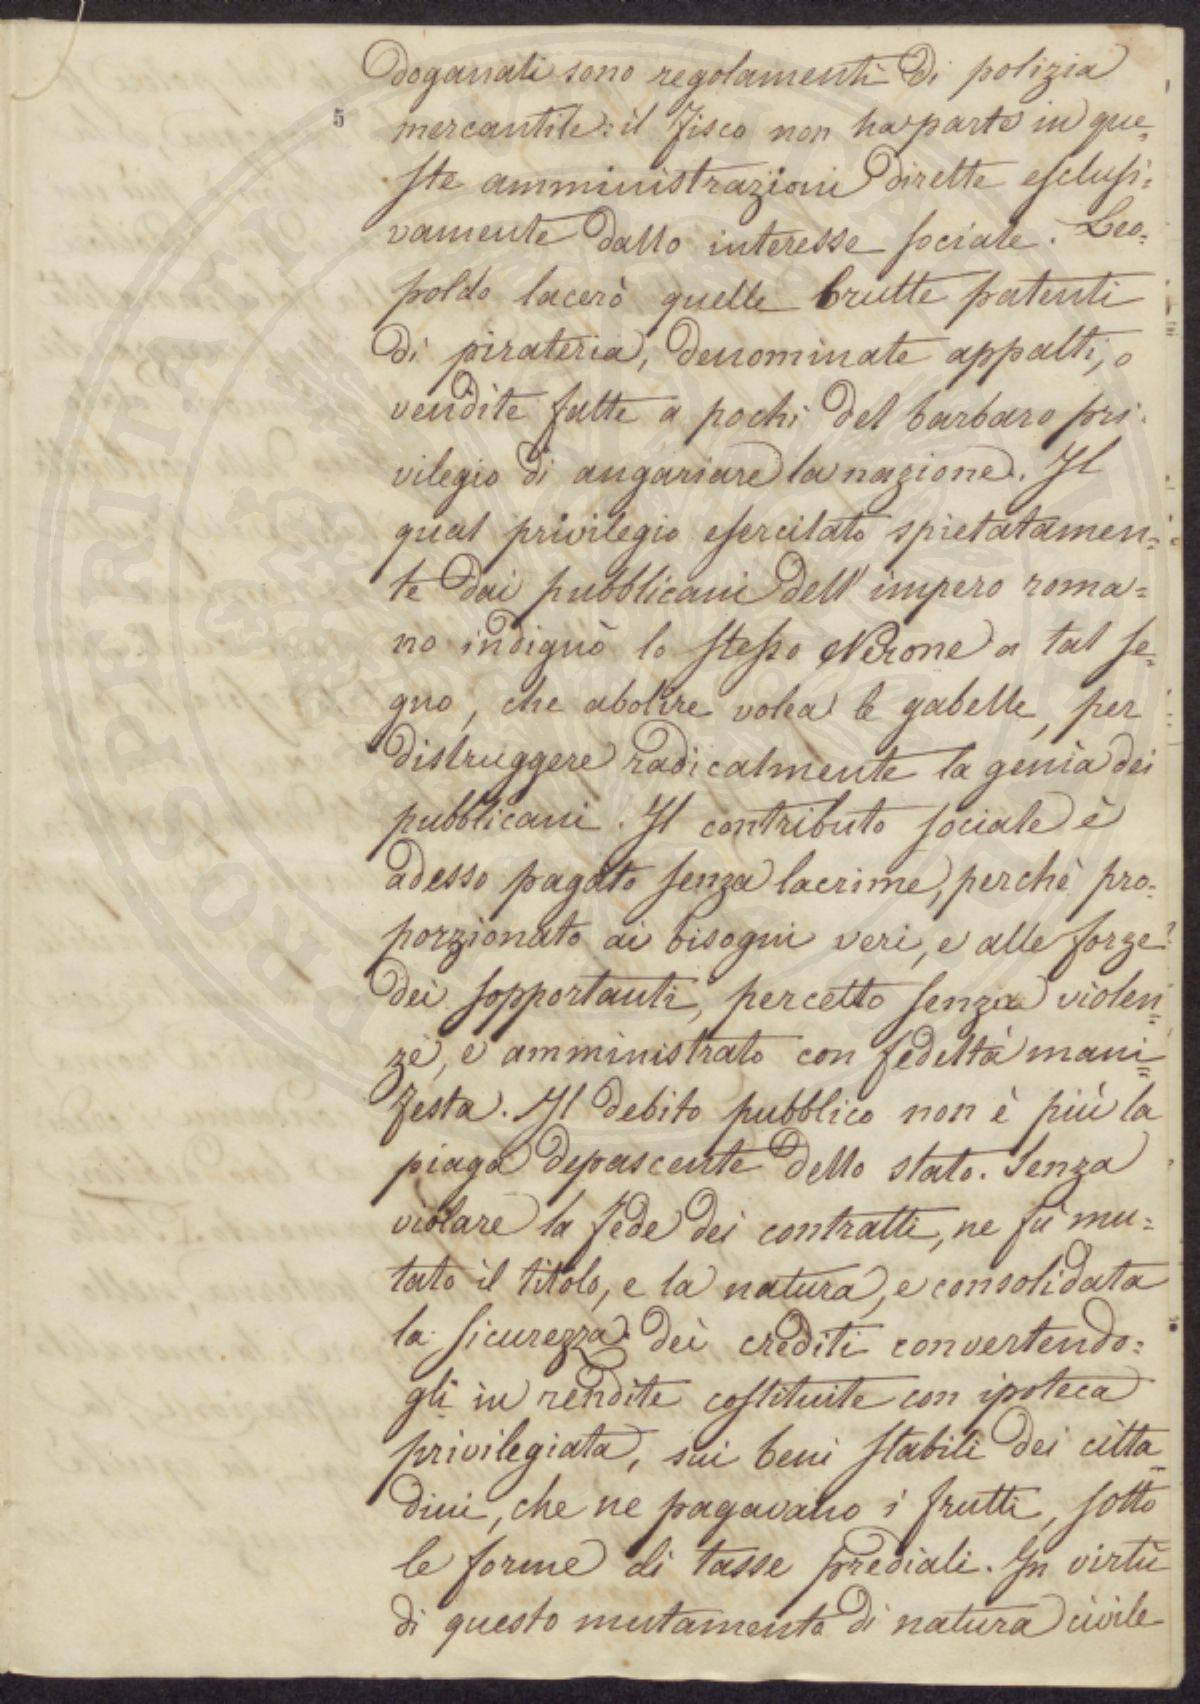 doganali sono regolamenti di polizia
5
mercantile: il Fisco non ha parte in que=
ste amministrazioni dirette esclusi=
vamente dallo interesse sociale. Leo=
poldo lacerò quelle brutte patenti
di pirateria, denominate appalti, o
vendite fatte a pochi del barbaro pri=
vilegio di angariare la nazione. Il
qual privilegio esercitato spietatamen=
te dai pubblicani dell'impero roma=
no indignò lo stesso Nerone a tal se=
gno, che abolire volea le gabelle, per
distruggere radicalmente la genìa dei
pubblicani. Il contributo sociale è
adesso pagato senza lacrime, perchè pro=
porzionato ai bisogni veri, e alle forze
dei sopportanti, percetto senza violen=
ze, e amministrato con fedeltà mani=
festa. Il debito pubblico non è più la
piaga depascente dello stato. Senza
violare la fede dei contratti, ne fù mu=
tato il titolo, e la natura, e consolidata
la sicurezza dei crediti convertendo=
gli in rendite costituite con ipoteca
privilegiata, sui beni stabili dei citta=
dini, che ne pagavano i frutti, sotto
le forme di tasse prediali. In virtù
di questo mutamento di natura civile
PROSPERITATI